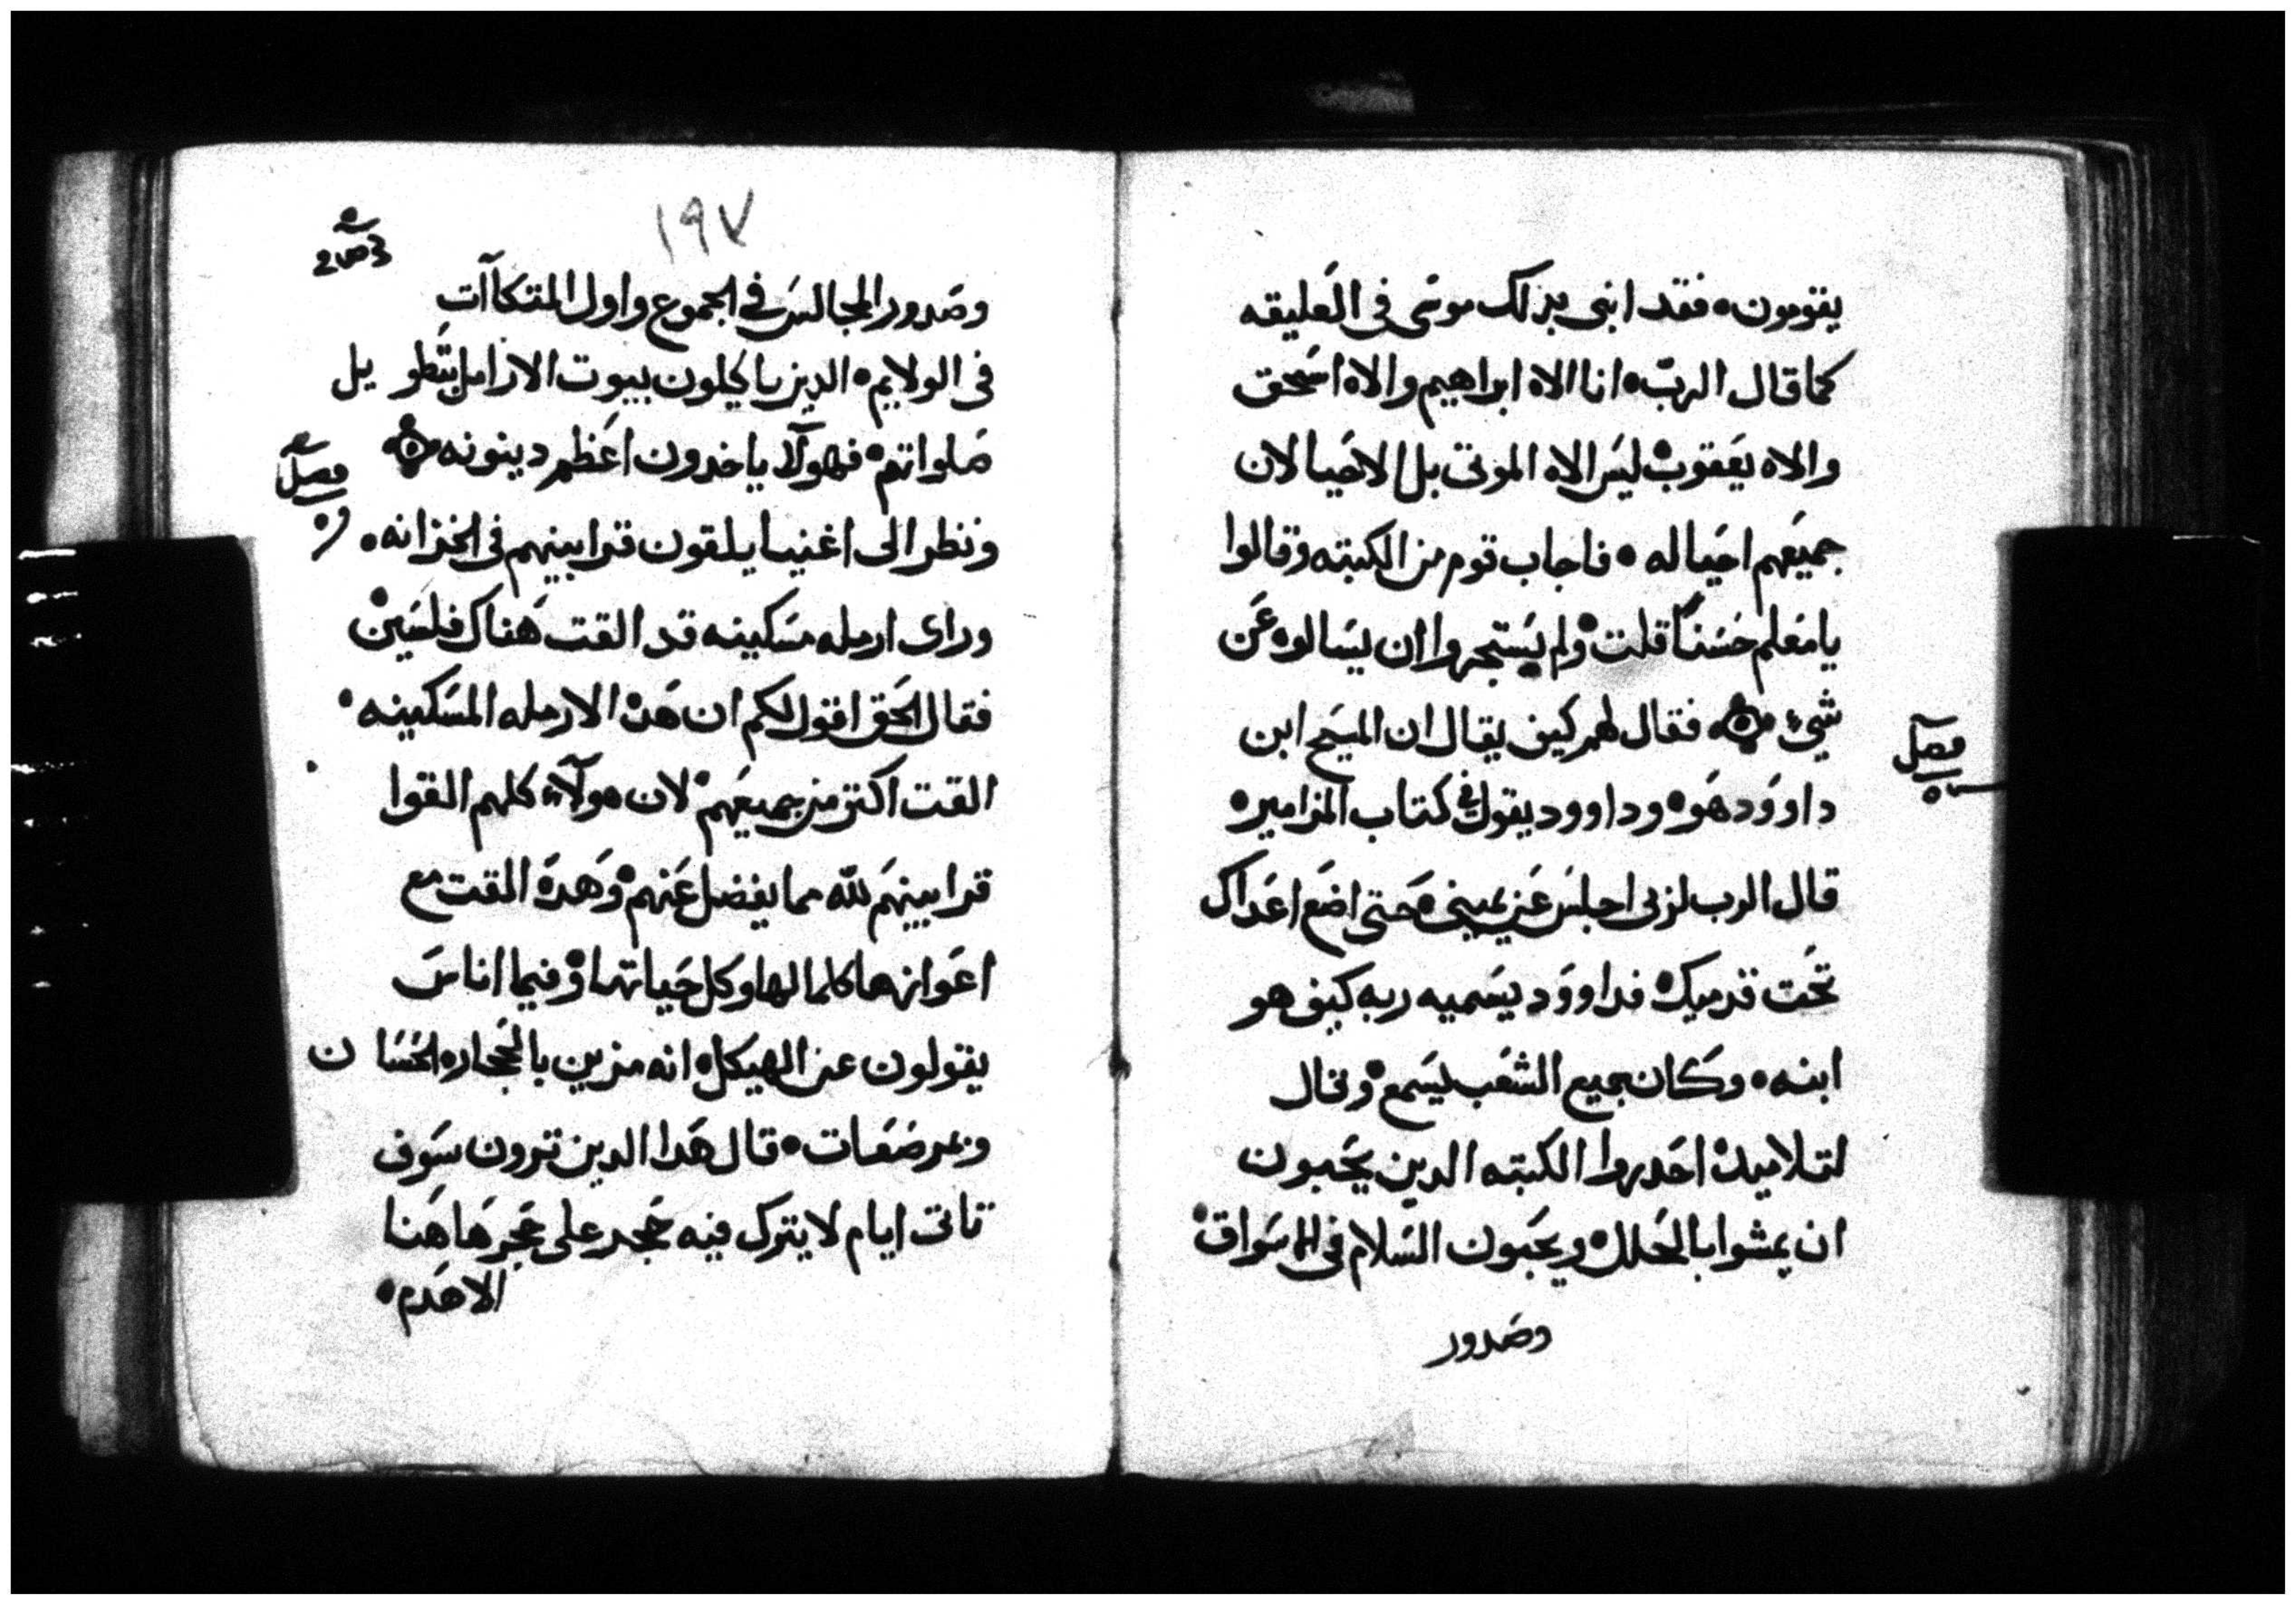 يقومون۰ فقد انبى بذلك موسى فى العليقه
كما قال الرب۰ انا الاه ابراهيم والاه اسحق
والاه يعقوب۰ ليس الاه الموتى بل الاحيا لان
جميعهم احيا له ۰ فاجاب قوم من الكتبه وقالوا
يا معلم حسنًا قلت۰ ولم يستجروا ان يسالوه عن
شيء ۰ فقال لهم كيف يقال ان المسيح ابن
داوود هو۰ وداوود يقول فى كتاب المزامير۰
قال الرب لربى اجلس عن يمينى۰ حتى اضع اعداك
تحت قدميك۰ فداوود يسميه ربه كيف هو
ابنه۰ وكان جميع الشعب يسمع۰ وقال
لتلاميده احدروا الكتبه الدين يحبون
ان يمشوا بالحلل۰ ويحبون السلام فى الاسواق۰
وصدور
فصل
١٩٧
وصدور المجالس فى الجموع واول المتكاآت
فى الولايم۰ الدين ياكلون بيوت الارامل بتطويل
صلواتهم۰ فهولآ ياخدون اعظم دينونه
ونظر الى اغنيا يلقون قرابينهم فى الخزانه۰
وراى ارمله مسكينه قد القت هناك فلسين۰
فقال الحق اقول لكم ان هده الارمله المسكينه۰
القت اكتر من جميعهم۰ لان هولآء كلهم القوا
قرابينهم لله مما يفضل عنهم۰ وهده القت مع
اعوازها كلما لها وكل حياتها۰ وفيما اناس
يقولون عن الهيكل۰ انه مزين بالحجاره الحسان
وعرضعات۰ قال هدا الدين ترون سوف
تاتى ايام لا يترك فيه حجر على حجر هاهنا
الا هدم۰
فصل